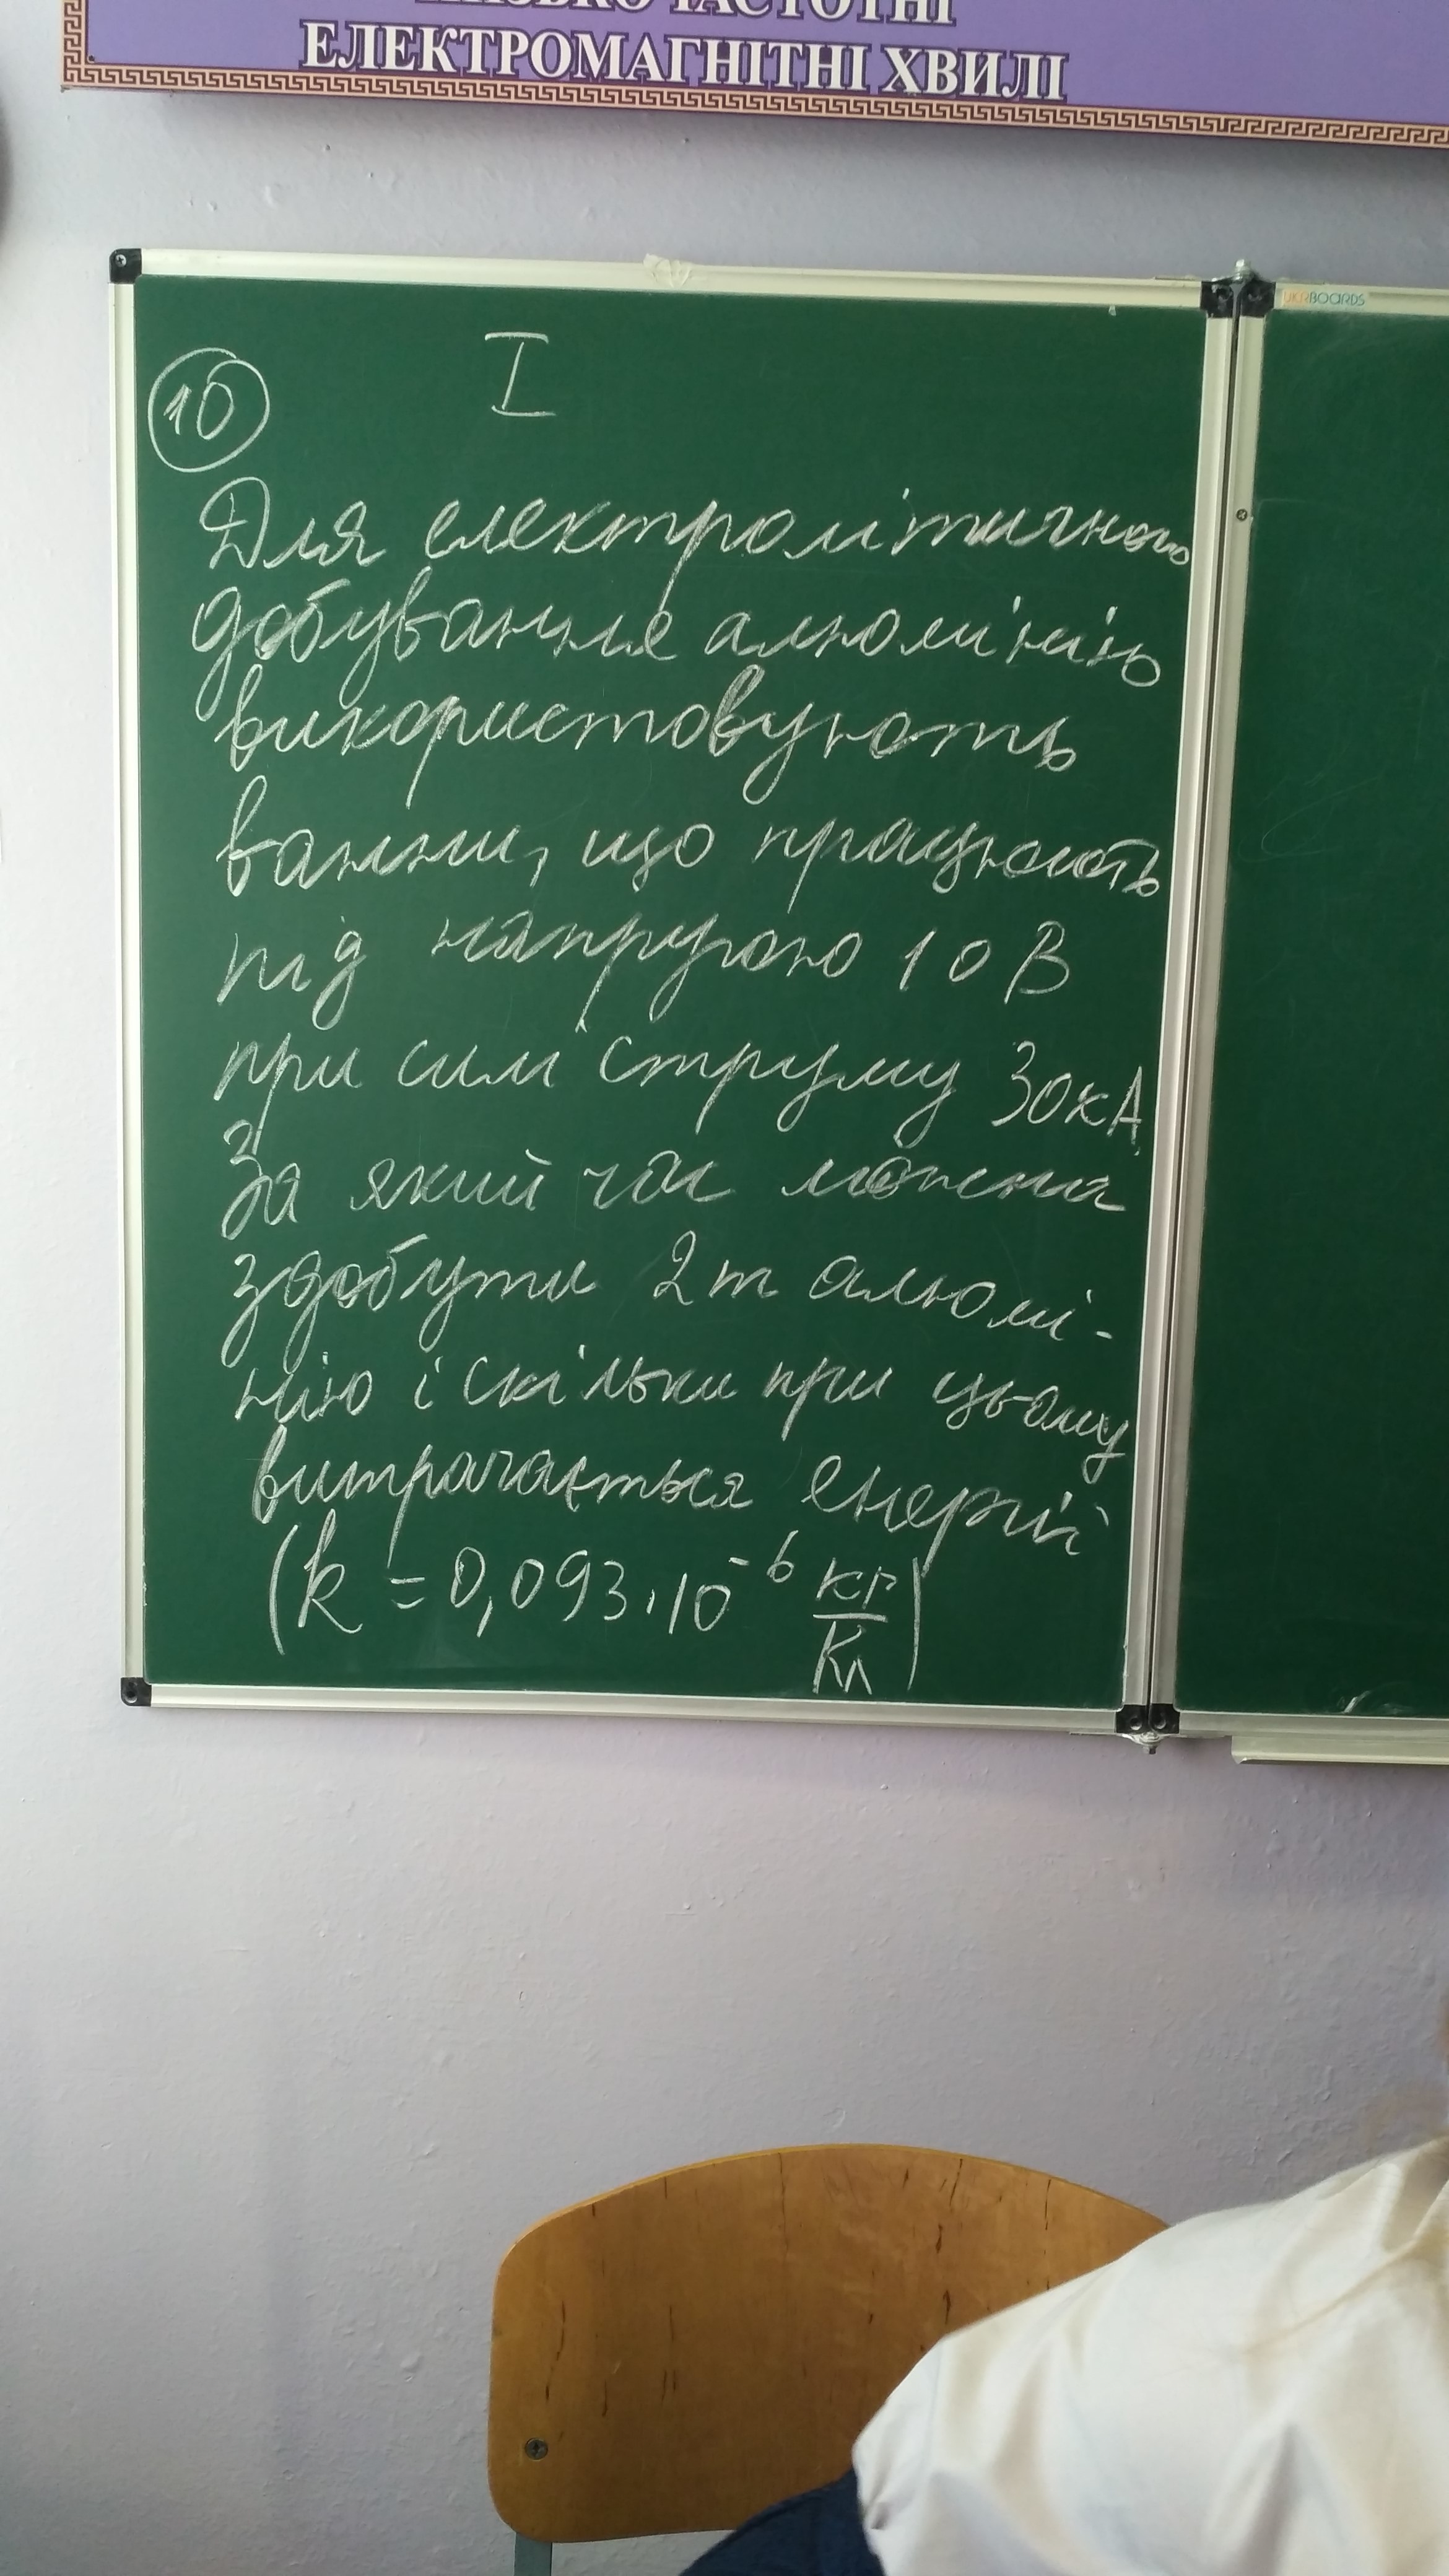 ЕЛЕКТРОМАГНІТНІ ХВИЛІ
UKRBOARDS
I
10
Для електролітичного
добування алюмінію
використовують
ванни, що працюють
під напругою 10 В
при силі струму 30 кА
За який час можна
здобути 2 т алюмі-
нію і скільки при цьому
витрачається енергії
(k = 0,093·10⁻⁶ кг/Кл)